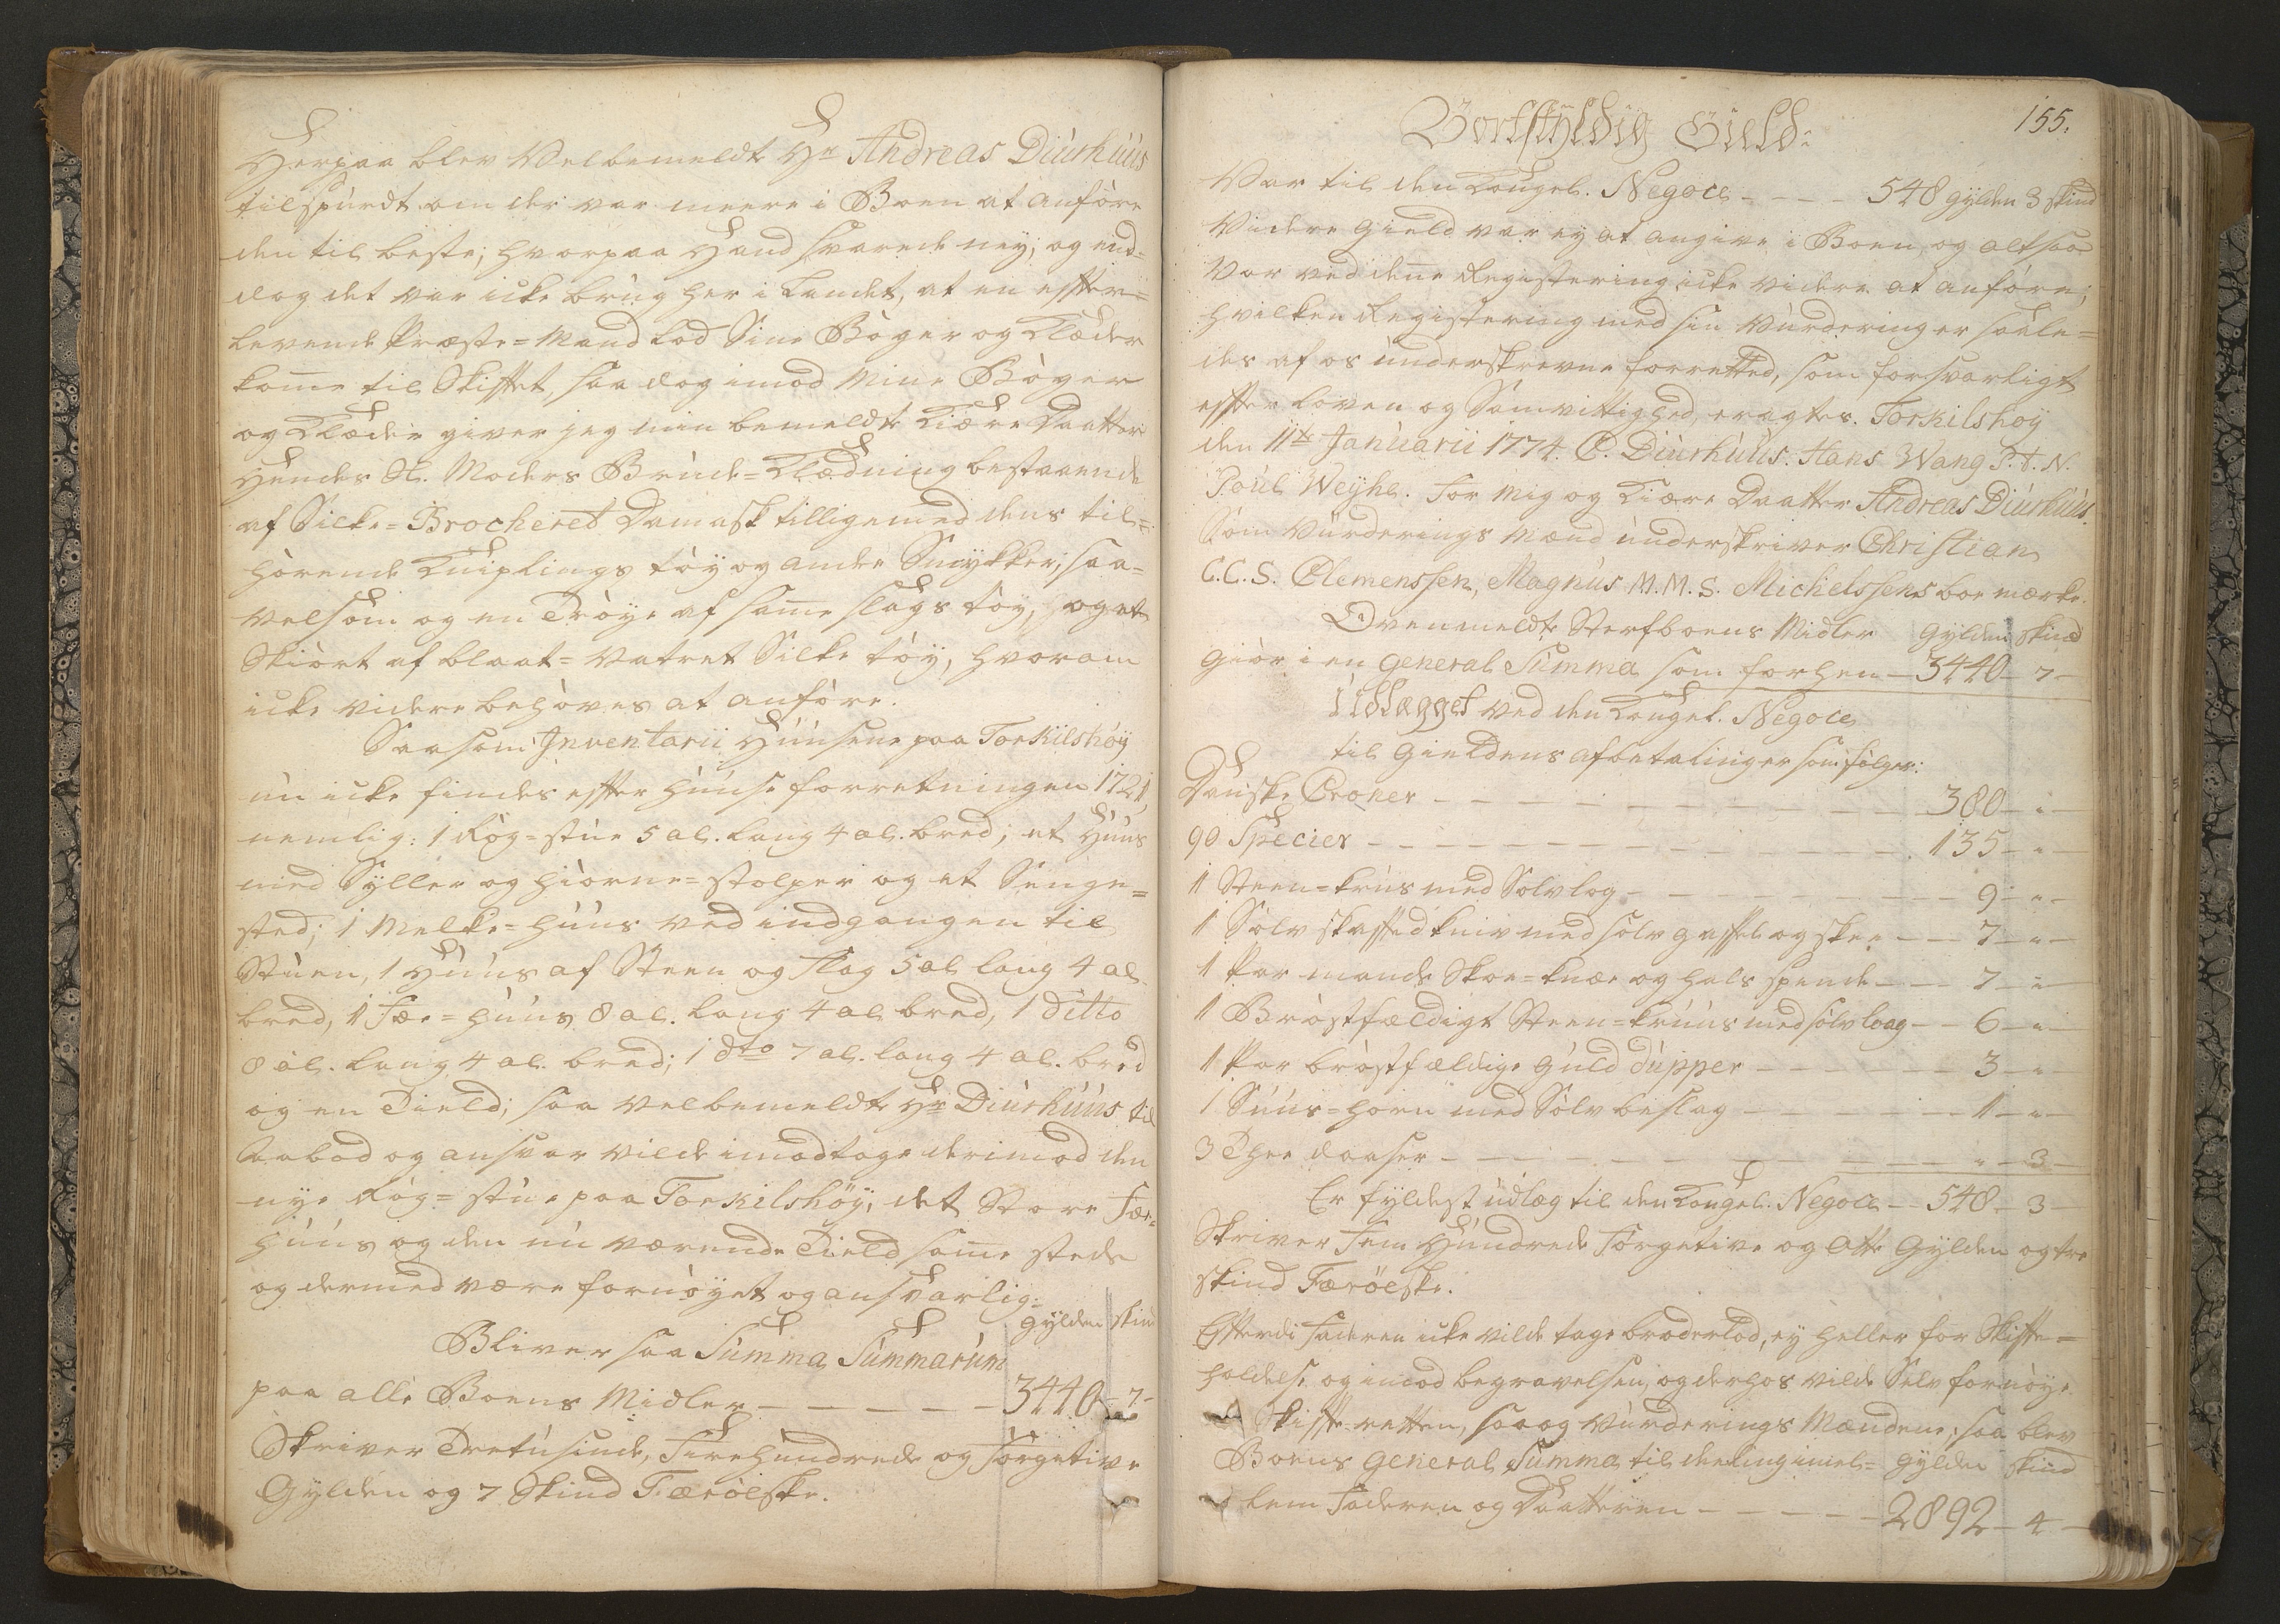 Herpaa blev Velbemeldte Hr Andreas Diurhuus
tilspurdt om der var meere i Boen at anføre
den til beste; hvorpaa Hand svarede ney; og end-
dog det var icke brug her i Landet, at en effter=
levende Præste=Mand lod Sine Bøger og Klæder
kom̅e til Skifftet, saa dog imod mine Bøger
og Klæder giver jeg min bemeldte Kiære Daatter
Hendes Sl. Moders Brude=Klædning bestaaende
af Silke=Brocheret Damask tilligemed dens til=
hørende Kniplings tøy og andre Smykker; saa=
velsom og en Trøye af sam̅e slags tøy, og et
Skiørt af blaat=Vatret Silke tøy, hvorom
icke videre behøves at anføre.
Saasom Inventarii Huusene paa Torkilshøy
nu icke findes effter huuse forretningen 1721,
nemlig: 1 Røg=stue 5 al. lang 4 al. bred; et Huus
med Syller og hiørne=stolper og et Senge=
sted; 1 Melke=huus ved indgangen til
Stuen, 1 Huus af Steen og Flag 5 al lang 4 al
bred, 1 Fæe=huus 8 al. lang 4 al bred, 1 ditto
8 al. lang 4 al. bred; 1 dto 7 al. lang 4 al. bred
og en Tield; saa Velbemeldte Hr Diurhuus til
Aabod og ansvar vilde imodtage derimod den
nye Røg=stue paa Torkilshøy, det Store Fæe=
huus og den nu værende Tield sam̅e steds
og dermed være fornøyet og ansvarlig:
Gylden skind
Bliver saa Summa Summarum
paa alle Boens Midler — — — — — 3440 — 7 —
Skriver Tretusinde, Firehundrede og Førgetive
Gylden og 7 Skind Færøeske.
155.
Bortskyldig Gield:
Var til den Kongel. Negoce - - - - 548 gylden 3 skind
Videre Gield var ey at angive i Boen og altsaa
Var ved den̅e Registering icke videre at anføre;
hvilken Registering med sin Vurdering er saale=
des af os underskrevne forretted, som forsvarligt
effter Loven og Samvittighed, eragtes. Torkilshøy
den 11te Januarii 1774. C. Diurhuus. Hans Wang P.t. N.
Poul Weyhe. For mig og Kiære Daatter Andreas Diurhuus.
Som Vurderings Mænd underskriver Christian
C.C.S. Clemenssen, Magnus M.M.S. Michelssens boe mærke.
Ovenmeldte Sterfboens Midler Gylden skind
giør i en General Summa som forhen — 3440 — 7 —
Udlægget ved den Kongel. Negoce
til Gieldens afbetalinger som følger:
Danske Croner — — — — — — 380 — „ —
90 Specier — — — — — — 135 — „ —
1 Steen=kruus med Sølvlog — — — — 9 — „ —
1 Sølv skafted kniv med sølv gaffel og skee — — 7 — „ —
1 Par mands Skoe=knæ og hals spende — — 7 — „ —
1 Brøstfældigt Steen=kruus med sølvloeg — — 6 — „ —
1 Par brøstfældige Guld dupper — — — — 3 — „ —
1 Snuus=horn med Sølv beslag — — — — 1 — „ —
3 Thee daaser — — — — — — „ — 3 —
Er fyldest udlæg til den Kongel. Negoce — 548 — 3 —
Skriver Fem Hundrede Førgetive og Otte Gylden og tre
skind Færøeske.
Efterdi Faderen icke vilde tage broderlod, ey heller for Skiffte=
holdelse og imod begravelsen, og derhos vilde Selv fornøye
Skiffte=retten, saa og Vurderings Mændene; saa blev
Boens General Summa til deeling imel= gylden skind
lem Faderen og Daatteren — — — — — 2892 — 4 —